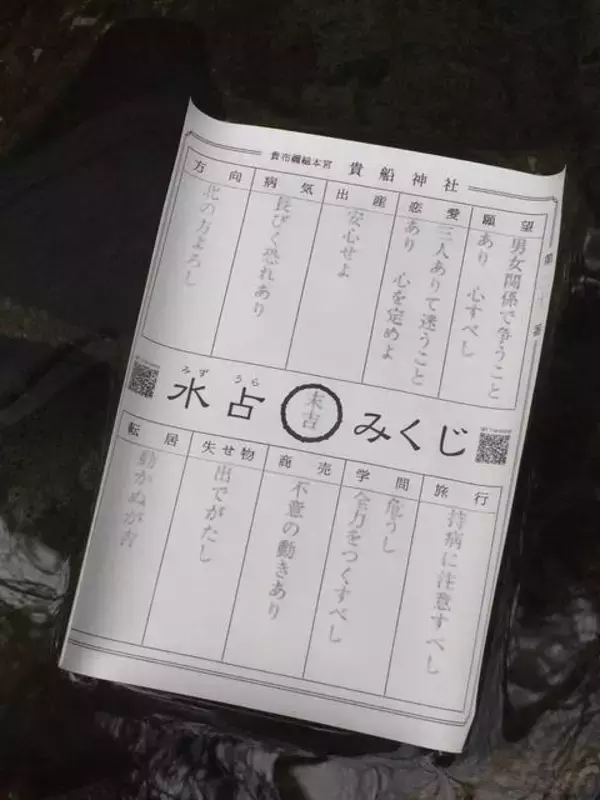 貴布禰総本宮 貴船神社
願望
男女関係で争うこと
あり 心すべし
恋愛
三人ありて迷うこと
あり 心を定めよ
出産
安心せよ
病気
長びく恐れあり
方向
北の方よろし
みず うら
水占
末吉
みくじ
旅行
持病に注意すべし
学問
危うし
全力をつくすべし
商売
不意の動きあり
失せ物
出でがたし
転居
動かぬが吉